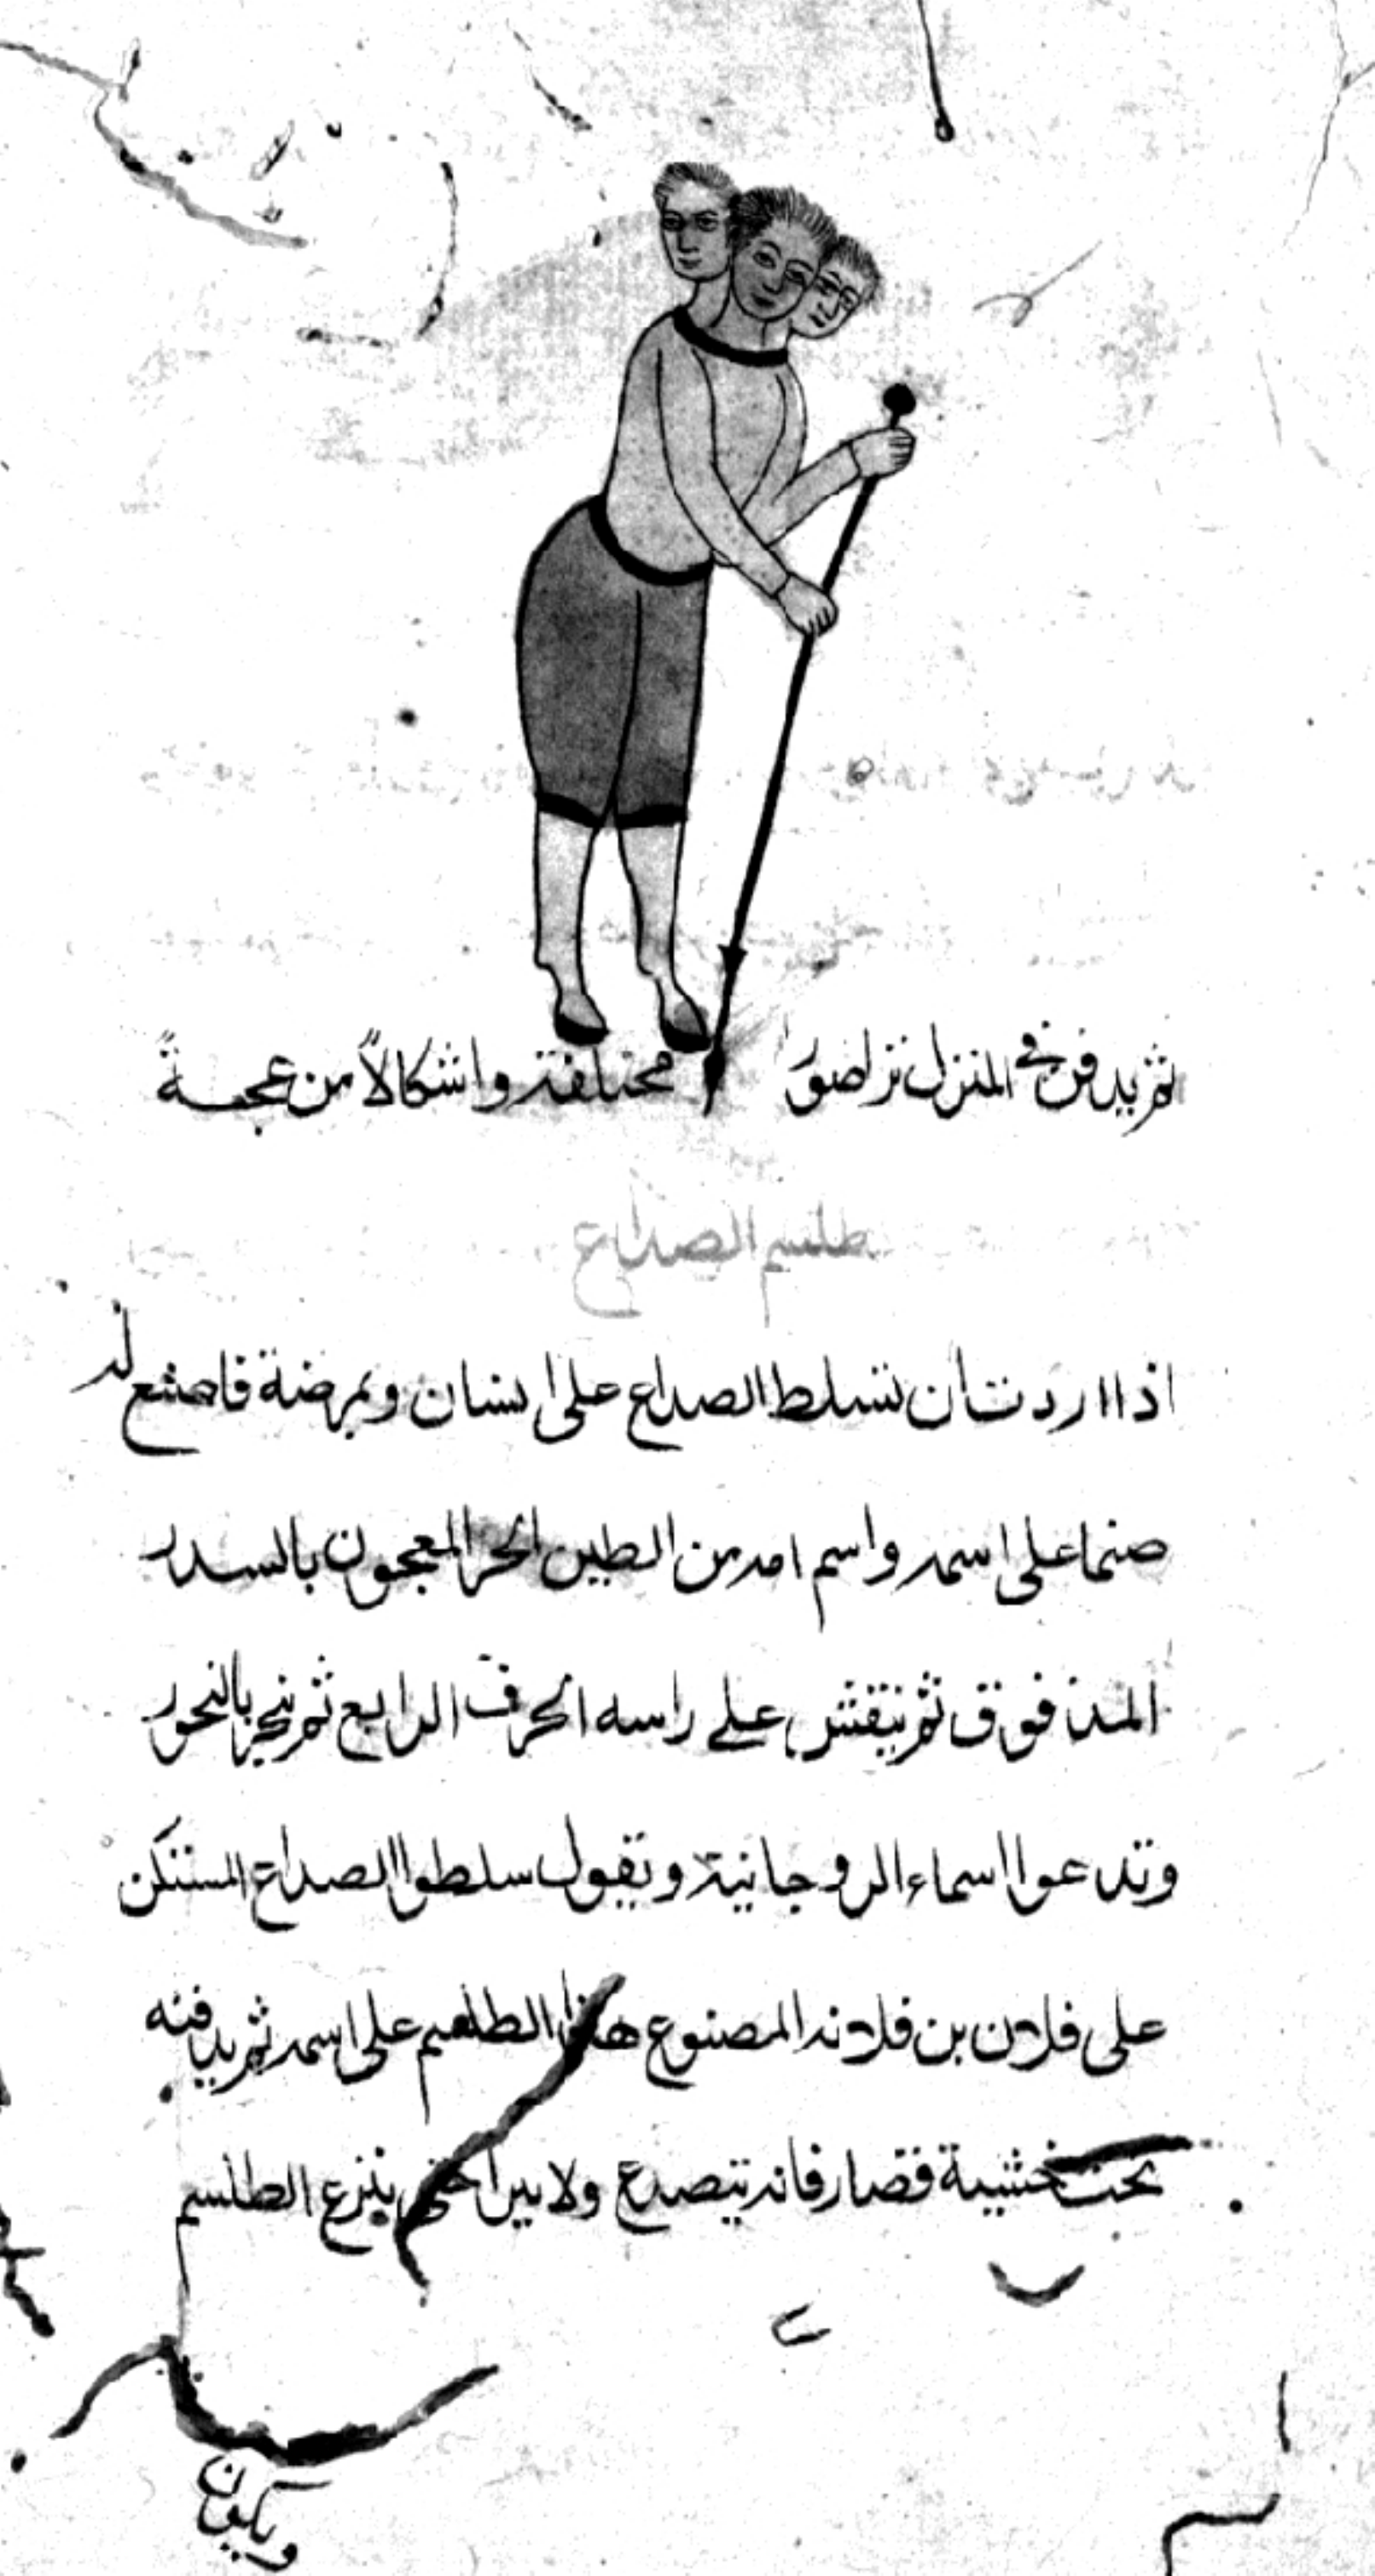 ثم يدفن في المنزل تراصورا مختلفة واشكالاً من عجمةً
طلسم الصداع
اذا اردت ان تسلط الصداع على انسان وتمرضة فاصنع له
صنما على اسمه واسم امه من الطين الحر المعجون بالسدر
المدفوق ثم ينقش على راسه الحرف الرابع ثم يبخر بالبخور
وتدعوا اسماء الروحانية وتقول سلطوا الصداع المستكن
على فلان بن فلانه المصنوع هذا الطلسم على اسمه ثم يدفنه
تحت خشبة قصار فانه يتصدع ولا يبرا حتى ينزع الطلسم
ويكون